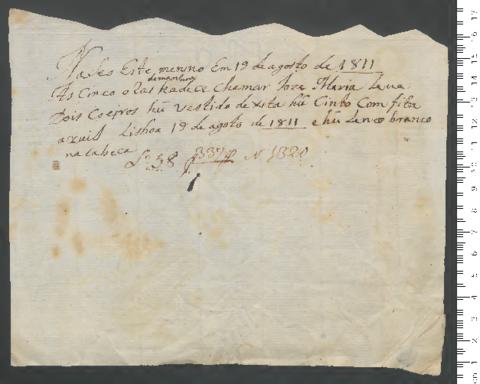 Naseo Este menino Em 19 de agosto de 1811
As Cinco oras demanham hadece Chamar Joze Maria Leva
Dois Coeiros hũ vestido de xita hũ Cinto Com fita
axuil Lisboa 19 de agosto de 1811 e hũ Lenco branco
na cabeca
Lº 38 f 337 N 1320